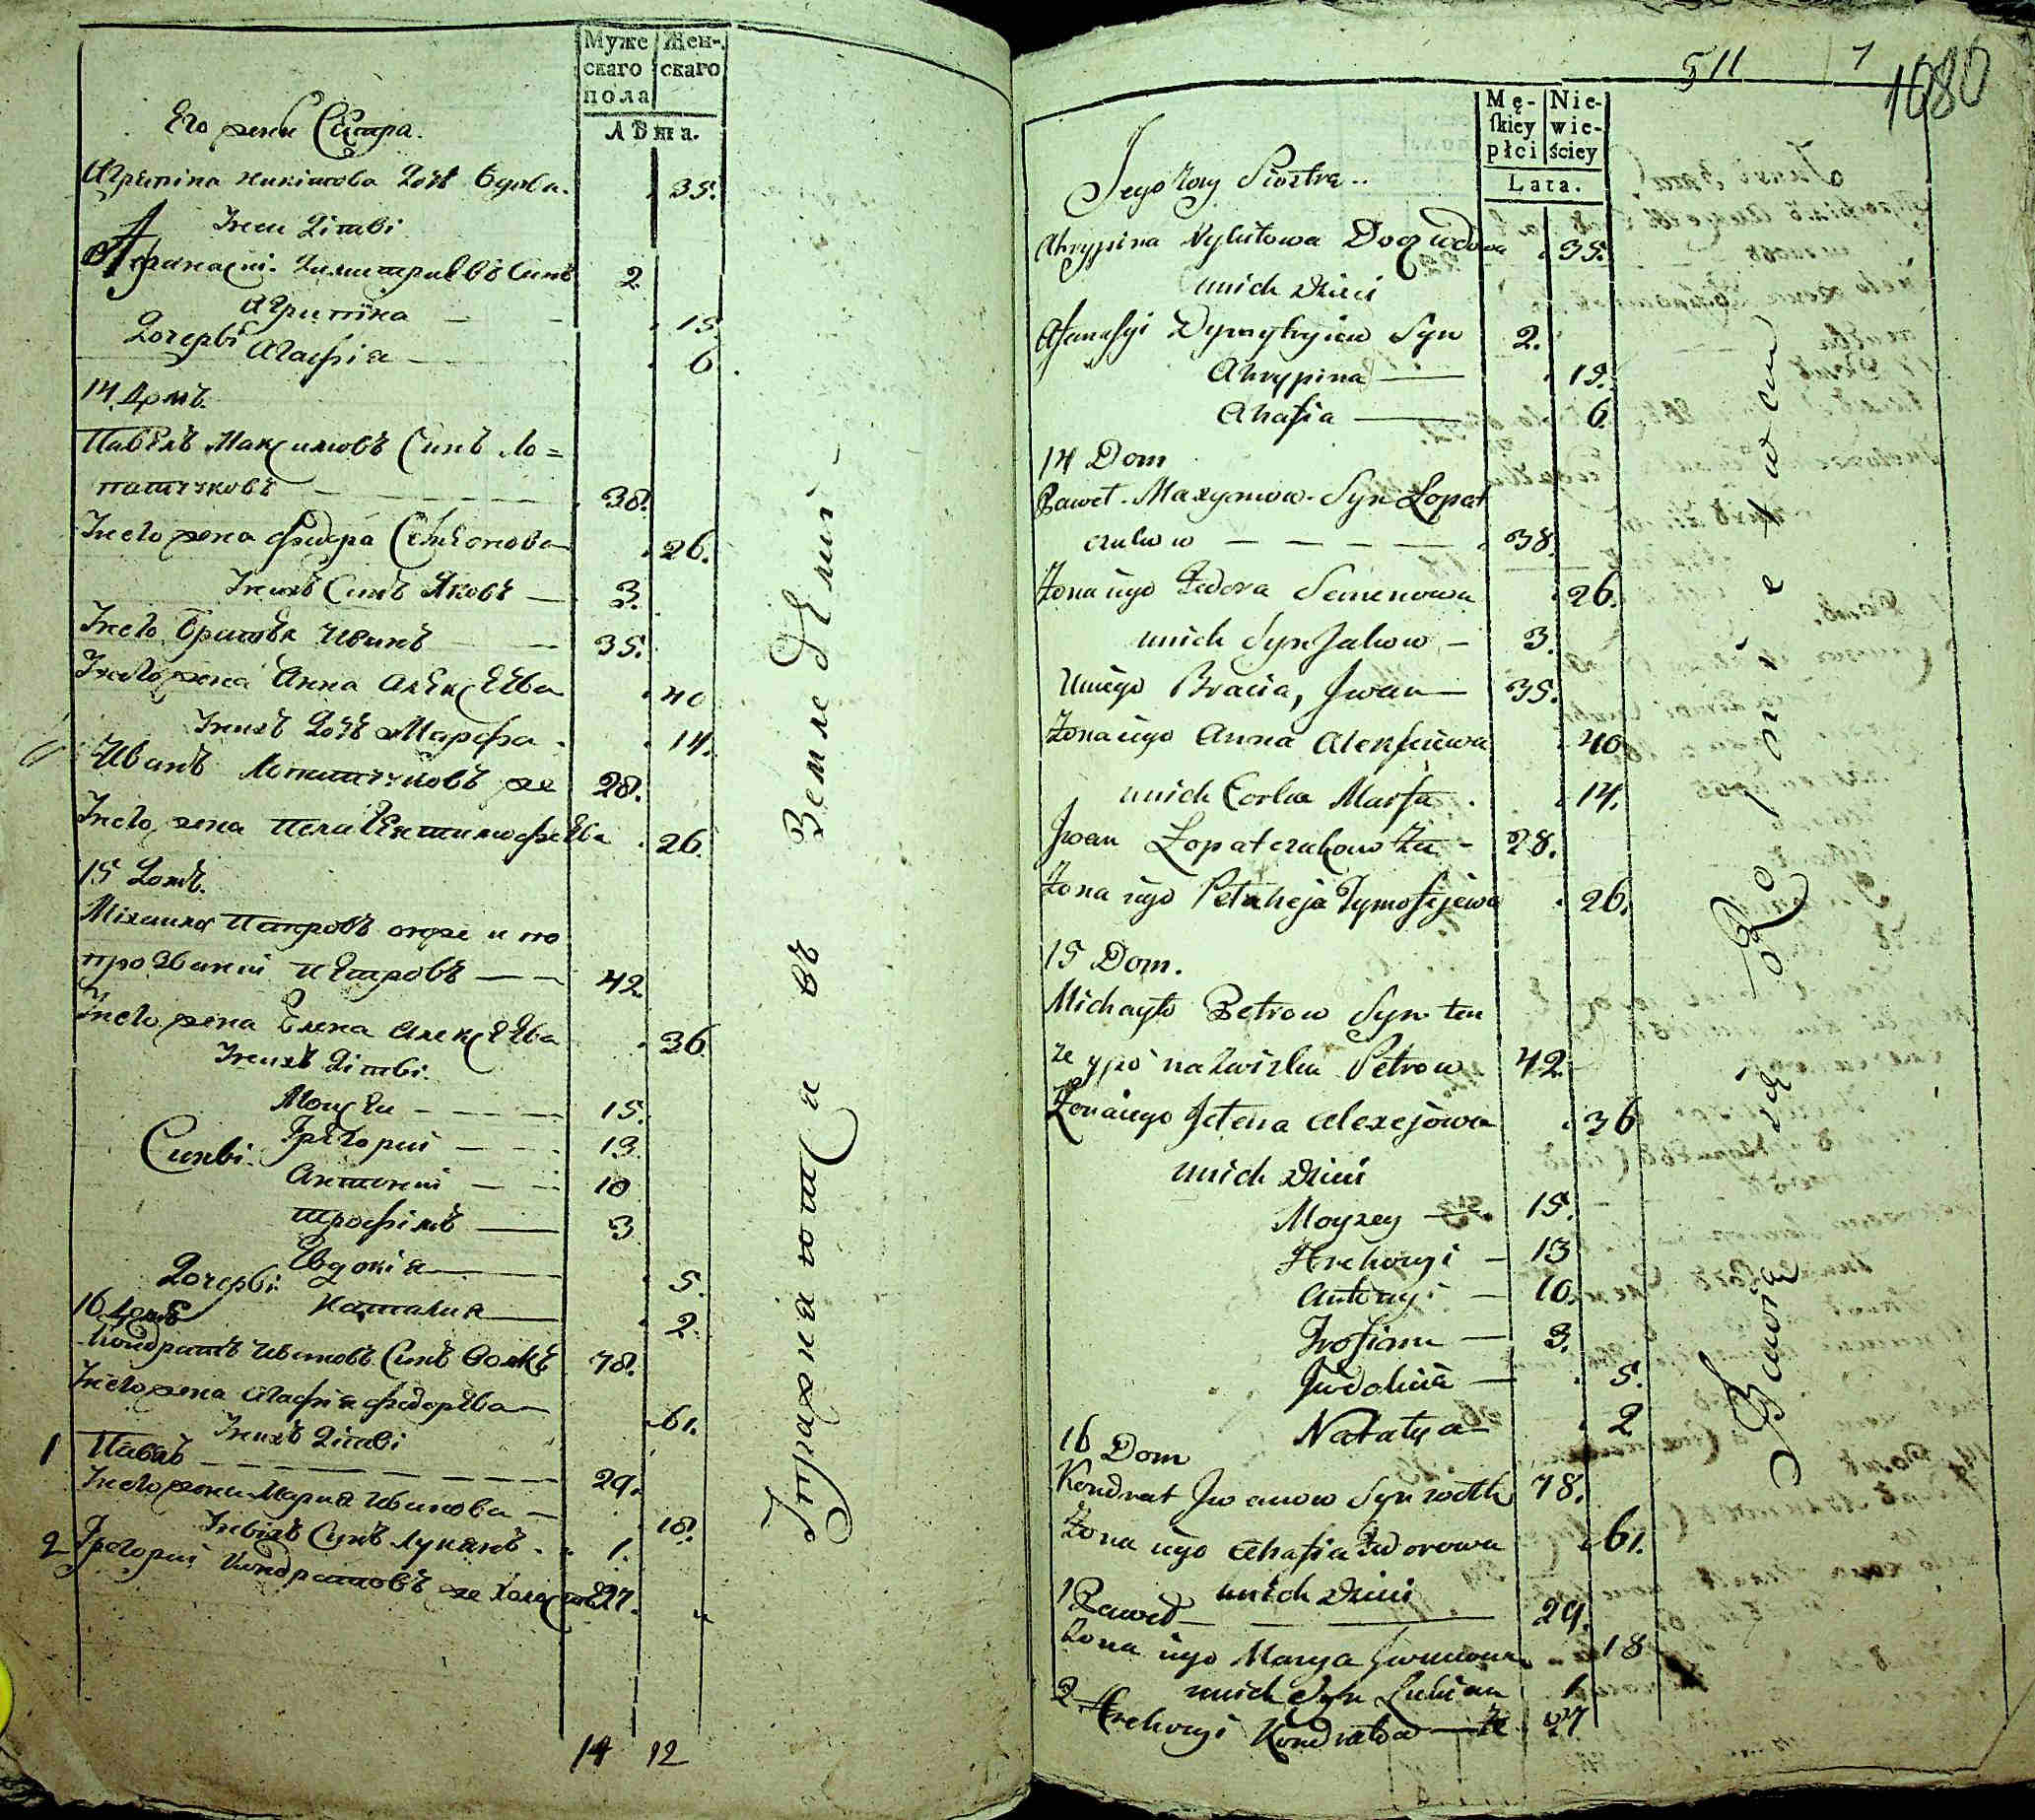 Муже
скаго
пола
Жен-
скаго
Лѣта.
Его жены Сестра.
Агрипина Никитова Дочь вдова. 35.
У неи Дѣти
Афанасій Димитріевъ Синъ 2
Агрипина — 15
Дочери
Агафія — 6.
14 Домъ.
Павелъ Максимовъ Синъ Ло=
патчковъ — 38.
У него жена Федора Семионова 26.
У нихъ Синъ Яковъ — 3.
У него Братья Иванъ — 35.
У него жена Анна Алексеева 40
У нихъ Дочь Марфа 14.
Иванъ Лопатчковъ же 28.
У него жена Пелагея Тимофеева 26.
15 Домъ.
Михаила Петровъ онже и по
прозванію Петровъ — 42.
У него жена Елена Алексеева 36.
У нихъ Дѣти.
Моисей — 15.
Григорій — 13.
Сины.
Антоній — 10
Трофимъ — 3
Евдокія — 5.
Дочери.
Наталия — 2.
16 Домъ
Кондратъ Ивановъ Синъ Волкъ 78.
У него жена Агафія Федорева 61.
У нихъ Дѣти
1 Павелъ — 29.
У него жена Мария Иванова — 18.
У нихъ Синъ Лукянъ 1.
2 Григорій Кондратовъ же Холостъ 27. "
14 12
Упражняются въ Земледеліи
511 7
1080
Mę-
skiey
płci
Nie-
wie-
ściey
Lata.
Jego żony Siostra..
Ahrypina Nykitowa Docz wdowa 35.
u nich dzieci
Afanasyi Dymytryiew Syn 2.
Ahrypina — 15.
Ahafia — 6
14 Dom
Paweł Maxymow Syn Łopat
czukow — 38.
Żona iego Fedora Semenowa 26.
u nich Syn Jakow — 3.
U niego Bracia, Jwan — 35.
Żona iego Anna Alexiiewa 40
u nich Corka Marfa 14.
Jwan Łopatczukow że — 28.
Żona iego Pelaheja Tymofiejewa 26.
15 Dom.
Michayło Petrow Syn ten
że y po nazwisku Petrow 42.
Żona iego Jelena Alexejowa 36
u nich dzieci
Moyzey — 15.
Hrehoryi — 13
Antonyi — 10.
Trofiam — 3.
Jwdokia — 5.
Natalya — 2
16 Dom
Kondrat Jwanow Syn wołk 78.
Żona iego Ahafia Fedorowa 61.
u nich dzieci
1 Paweł — 29.
Żona iego Marya Jwanowa 18
u nich Syn Lukian 1
2 Hrehoryi Kondratow — że 27
Bawią się Rolnictwem